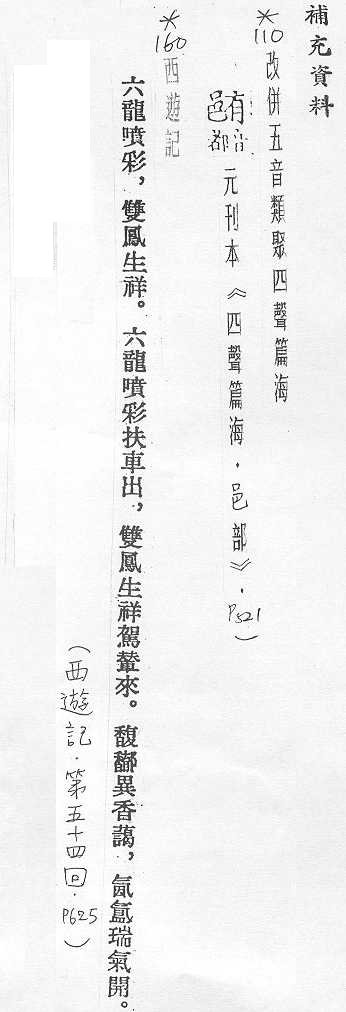 補充資料
*110 改併五音類聚四聲篇海
音都 元刊本《四聲篇海．邑部》．P521)
*160 西遊記
六龍噴彩，雙鳳生祥。六龍噴彩扶車出，雙鳳生祥駕輦來。馥郁異香藹，氤氳瑞氣開。
(西遊記．第五十四回．P625)